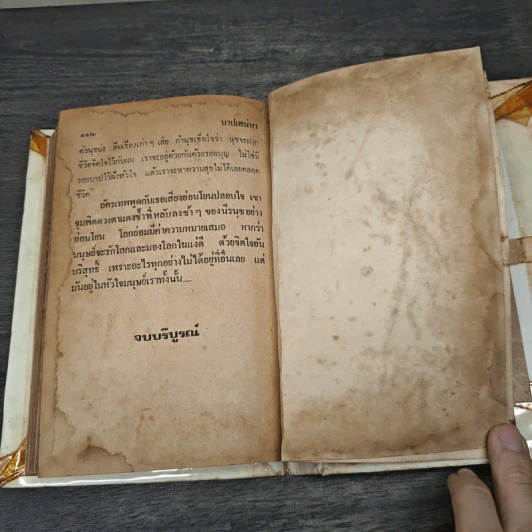 ๑๑๒ บาปเสน่หา
ครับนุชน่ะ ลืมเรื่องเก่าๆ เสีย ถ้านุชเชื่อใจว่า นุชจะฝาก
ชีวิตจิตใจไว้กับผม เราจะอยู่ด้วยกันด้วยรอยบุญ ไม่ใช่มี
รอยบาปไว้ฝังหัวใจ แล้วเราจะหาความสุขไม่ได้เลยตลอด
ชีวิต"
อัครเทพพูดกับเธอเสียงอ่อนโยนปลอบใจ เขา
จุมพิตดวงตาแดงช้ำที่หลับลงช้าๆ ของนีรนุชอย่าง
อ่อนโยน โลกย่อมมีค่าความหมายเสมอ หากว่า
มนุษย์จะรักโลกและมองโลกในแง่ดี ด้วยจิตใจอัน
บริสุทธิ์ เพราะอะไรทุกอย่างไม่ได้อยู่ที่อื่นเลย แต่
มันอยู่ในหัวใจมนุษย์เราทั้งนั้น....
จบบริบูรณ์